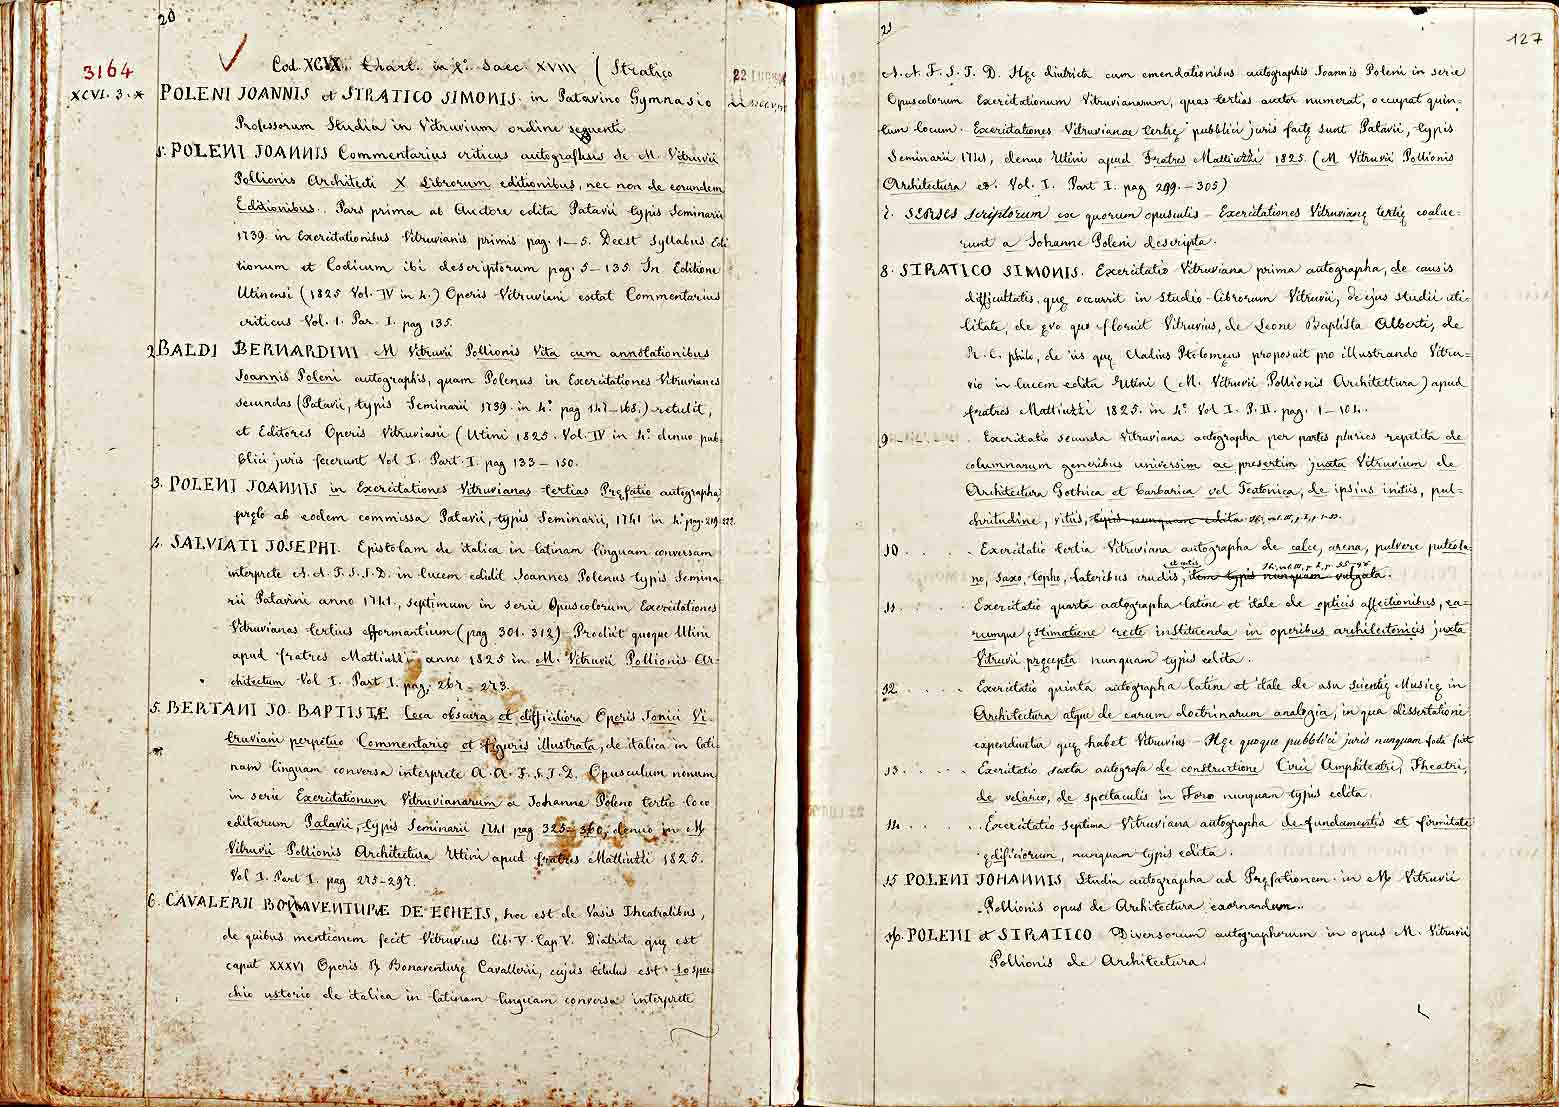 20
3164
XCVI. 3. X
Cod. XCVI. Chart. in 4.° Saec. XVIII ( Stratico
22
POLENI JOANNIS et STRATICO SIMONIS. in Patavino Gymnasio
Professorum Studia in Vitruvium ordine sequenti
1. POLENI JOANNIS Commentarius criticus autographus de M. Vitruvii
Pollionis Architecti X Librorum editionibus, nec non de eorundem
Editionibus. Pars prima ab Auctore edita Patavii typis Seminarii
1739. in Exercitationibus Vitruvianis primis pag. 1–5. Deest Syllabus Edi
tionum et Codicum ibi descriptorum pag. 5–135. In Editione
Utinensi (1825 Vol. IV in 4.) Operis Vitruviani extat Commentarius
criticus Vol. 1. Par. I. pag 135.
2. BALDI BERNARDINI M Vitruvii Pollionis Vita cum annotationibus
Joannis Poleni autographis, quam Polenus in Exercitationes Vitruvianes
secundas (Patavii, typis Seminarii 1739. in 4.° pag 147–168.) retulit,
et Editores Operis Vitruviani (Utini 1825. Vol. IV in 4.° denuo pub-
blici juris fecerunt Vol I. Part. I. pag 133–150.
3. POLENI JOANNIS in Exercitationes Vitruvianas tertias Pręfatio autographa,
pręlo ab eodem commissa Patavii, typis Seminarii, 1741 in 4.° pag. 219-222.
4. SALVIATI JOSEPHI. Epistolam de italica in latinam linguam conversam
interprete A. A. F. S. J. D. in lucem edidit Joannes Polenus typis Semina-
rii Patavini anno 1741., septimum in serie Opusculorum Exercitationes
Vitruvianas tertius efformantium (pag 301. 312) Prodiit quoque Utini
apud fratres Mattiuzzi anno 1825 in M. Vitruvii Pollionis Ar-
chitectum Vol I. Part I. pag. 267–273.
5. BERTANI JO. BAPTISTÆ Loca obscura et difficiliora Operis Jonici Vi-
truviani perpetuo Commentario et figuris illustrata, de italica in lati-
nam linguam conversa interprete A. A. F. S. J. D. Opusculum nonum
in serie Exercitationum Vitruvianarum a Johanne Poleno tertio loco
editarum Patavii, typis Seminarii 1741 pag 325–360, denuo in M
Vitruvii Pollionis Architectura Utini apud fratres Mattiuzzi 1825.
Vol I. Part I. pag 275–297.
6. CAVALERII BONAVENTURÆ DE ECHEIS, hoc est de Vasis Theatralibus,
de quibus mentionem fecit Vitruvius lib. V. Cap V. Diatrita quę est
caput XXXVI Operis B Bonaventurę Cavallerii, cujus titulus est: Lo Spec-
chio ustorio de italica in latinam linguam conversa interprete
21
127
A. A. F. S. J. D. Hęc diatricta cum emendationibus autographis Joannis Poleni in serie
Opusculorum Exercitationum Vitruvianarum, quas tertias auctor numerat, occupat quin-
tum locum. Exercitationes Vitruvianae tertię pubblici juris factę sunt Patavii, typis
Seminarii 1741, denuo Utini apud Fratres Mattiuzzi 1825. (M Vitruvii Pollionis
Architectura etc. Vol. I. Part I. pag 299.–305)
7. SERIES Scriptorum ex quorum opusculis – Exercitationes Vitruvianę tertię coalue-
runt a Johanne Poleni descripta.
8. STRATICO SIMONIS. Exercitatio Vitruviana prima autographa, de causis
difficultatis, quę occurrit in studio librorum Vitruvii, de ejus studii uti-
litate, de ęvo quo floruit Vitruvius, de Leone Baptista Alberti, de
philo, de iis quę Cladius Ptolomęus proposuit pro illustrando Vitru-
vio in lucem edita Utini (M. Vitruvii Pollionis Architettura) apud
fratres Mattiuzzi 1825. in 4.° Vol I. P. II. pag. 1–104.
9 . Exercitatio secunda Vitruviana autographa per partes pluries repetita de
columnarum generibus universim ac presertim juxta Vitruvium de
Architectura Gothica et barbarica vel Teutonica, de ipsius initiis, pul-
chritudine, vitiis, typis nunquam edita. Ib., vol. III, p. I, p. 1-33.
10 . . . . . Exercitatio tertia Vitruviana autographa de calce, arena, pulvere puteola-
no, saxo, topho, lateribus crudis, et coctis, item typis nunquam vulgata. Ib. vol. III, p. I, p. 35-
11 . . . . . Exercitatio quarta autographa latine et itale de opticis affectionibus, ea-
rumque ęstimatione recte instituenda in operibus architectonicis juxta
Vitruvii pręcepta nunquam typis edita.
12 . . . . . Exercitatio quinta autographa latine et itale de usu scientię Musicę in
Architectura atque de earum doctrinarum analogia, in qua dissertatione
expenduntur quę habet Vitruvius – Hęc quoque pubblici juris nunquam facta fuit
13 . . . . . Exercitatio sexta autografa de constructione Circi Amphiteatri, Theatri,
de velario, de spectaculis in Foro nunquam typis edita.
14 . . . . . Exercitatio septima Vitruviana autographa de fundamentis et firmitate
ędificiorum, nunquam typis edita.
15 POLENI JOHANNIS. Studia autographa ad Pręfationem in M Vitruvii
Pollionis opus de Architectura exornandum.
16. POLENI et STRATICO Diversorum autographorum in opus M. Vitruvii
Pollionis de Architectura